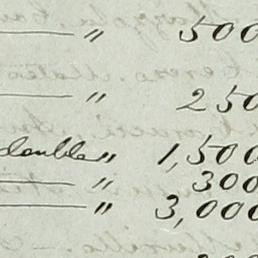 — " 500
— " 250
double " 1,500
— " 300
— " 3,000